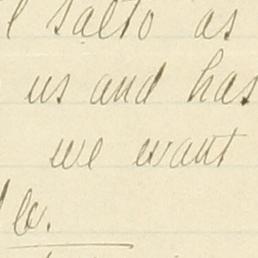 salto as
us and has
we want